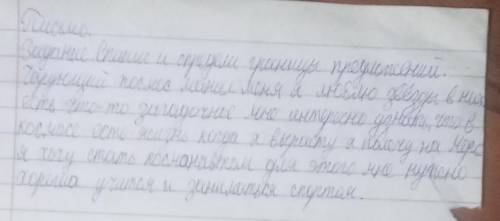 Письмо.
Задание Спиши и определи границы предложений.
Чарующий космос манит меня я люблю звёзды в них
есть что-то загадочное мне интересно узнать, что в
космосе есть жизнь когда я вырасту я полечу на Марс
я хочу стать космонавтом для этого мне нужно
хорошо учится и заниматься спортом.